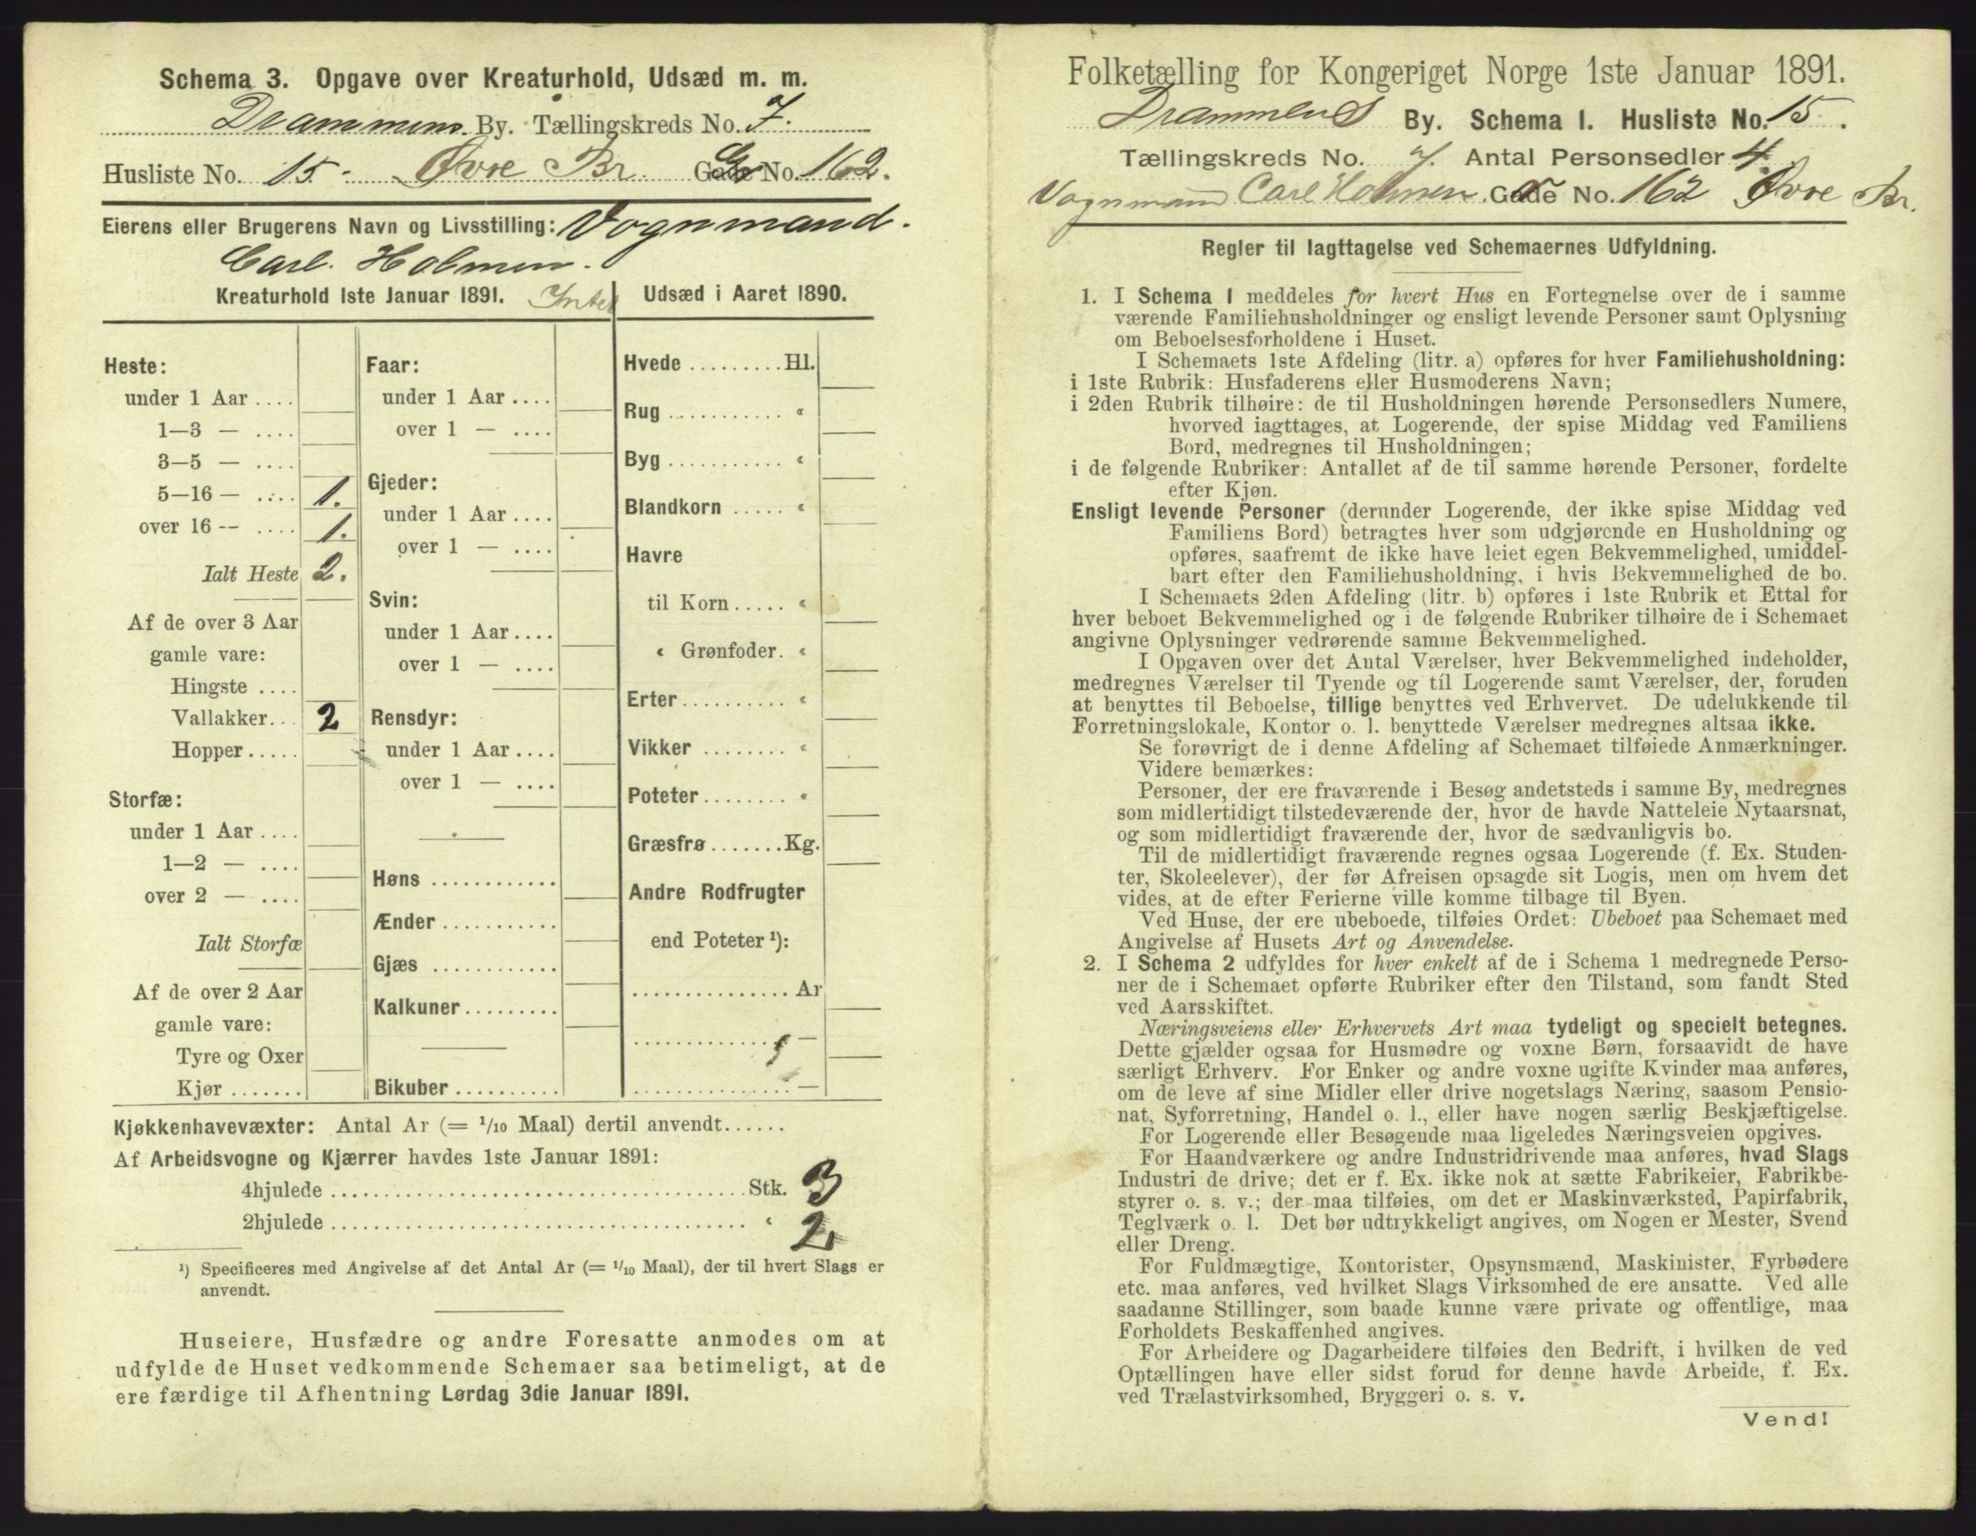 Schema 3. Opgave over Kreaturhold, Udsæd m. m.
Drammens By. Tællingskreds No. 7.
Husliste No. 15. Øvre Br. Gade No. 162.
Eierens eller Brugerens Navn og Livsstilling: Vognmand.
Carl Holmen.
Kreaturhold 1ste Januar 1891.
Heste:
under 1 Aar ....
1—3 — ....
3—5 — ....
5—16 — .... 1.
over 16 — .... 1.
Ialt Heste 2.
Af de over 3 Aar
gamle vare:
Hingste ....
Vallakker... 2
Hopper.....
Storfæ:
under 1 Aar ....
1—2 — ....
over 2 — ....
Ialt Storfæ
Af de over 2 Aar
gamle vare:
Tyre og Oxer
Kjør .......
Faar:
under 1 Aar ....
over 1 — ....
Gjeder:
under 1 Aar ....
over 1 — ....
Svin:
under 1 Aar ....
over 1 — ....
Rensdyr:
under 1 Aar ....
over 1 — ....
Høns ............
Ænder ...........
Gjæs ............
Kalkuner.........
Bikuber ..........
Udsæd i Aaret 1890.
Hvede .........Hl.
Rug ........... «
Byg ........... «
Blandkorn ..... «
Havre
til Korn..... «
« Grønfoder. «
Erter .......... «
Vikker ........ «
Poteter........ «
Græsfrø.......Kg.
Andre Rodfrugter
end Poteter ¹):
............... Ar
............... —
............... —
Kjøkkenhavevæxter: Antal Ar (= 1/10 Maal) dertil anvendt......
Af Arbeidsvogne og Kjærrer havdes 1ste Januar 1891:
4hjulede ........................................Stk. 3
2hjulede ........................................ « 2
¹) Specificeres med Angivelse af det Antal Ar (= 1/10 Maal), der til hvert Slags er
anvendt.
Huseiere, Husfædre og andre Foresatte anmodes om at
udfylde de Huset vedkommende Schemaer saa betimeligt, at de
ere færdige til Afhentning Lørdag 3die Januar 1891.
Folketælling for Kongeriget Norge 1ste Januar 1891.
Drammens By. Schema 1. Husliste No. 15.
Tællingskreds No. 7. Antal Personsedler 4
Vognmand Carl Holmen. Gade No. 162 Øvre Br.
Regler til Iagttagelse ved Schemaernes Udfyldning.
1. I Schema 1 meddeles for hvert Hus en Fortegnelse over de i samme
værende Familiehusholdninger og ensligt levende Personer samt Oplysning
om Beboelsesforholdene i Huset.
I Schemaets 1ste Afdeling (litr. a) opføres for hver Familiehusholdning:
i 1ste Rubrik: Husfaderens eller Husmoderens Navn;
i 2den Rubrik tilhøire: de til Husholdningen hørende Personsedlers Numere,
hvorved iagttages, at Logerende, der spise Middag ved Familiens
Bord, medregnes til Husholdningen;
i de følgende Rubriker: Antallet af de til samme hørende Personer, fordelte
efter Kjøn.
Ensligt levende Personer (derunder Logerende, der ikke spise Middag ved
Familiens Bord) betragtes hver som udgjørende en Husholdning og
opføres, saafremt de ikke have leiet egen Bekvemmelighed, umiddel-
bart efter den Familiehusholdning, i hvis Bekvemmelighed de bo.
I Schemaets 2den Afdeling (litr. b) opføres i 1ste Rubrik et Ettal for
hver beboet Bekvemmelighed og i de følgende Rubriker tilhøire de i Schemaet
angivne Oplysninger vedrørende samme Bekvemmelighed.
I Opgaven over det Antal Værelser, hver Bekvemmelighed indeholder,
medregnes Værelser til Tyende og til Logerende samt Værelser, der, foruden
at benyttes til Beboelse, tillige benyttes ved Erhvervet. De udelukkende til
Forretningslokale, Kontor o. l. benyttede Værelser medregnes altsaa ikke.
Se forøvrigt de i denne Afdeling af Schemaet tilføiede Anmærkninger.
Videre bemærkes:
Personer, der ere fraværende i Besøg andetsteds i samme By, medregnes
som midlertidigt tilstedeværende der, hvor de havde Natteleie Nytaarsnat,
og som midlertidigt fraværende der, hvor de sædvanligvis bo.
Til de midlertidigt fraværende regnes ogsaa Logerende (f. Ex. Studen-
ter, Skoleelever), der før Afreisen opsagde sit Logis, men om hvem det
vides, at de efter Ferierne ville komme tilbage til Byen.
Ved Huse, der ere ubeboede, tilføies Ordet: Ubeboet paa Schemaet med
Angivelse af Husets Art og Anvendelse.
2. I Schema 2 udfyldes for hver enkelt af de i Schema 1 medregnede Perso-
ner de i Schemaet opførte Rubriker efter den Tilstand, som fandt Sted
ved Aarsskiftet.
Næringsveiens eller Erhvervets Art maa tydeligt og specielt betegnes.
Dette gjælder ogsaa for Husmødre og voxne Børn, forsaavidt de have
særligt Erhverv. For Enker og andre voxne ugifte Kvinder maa anføres,
om de leve af sine Midler eller drive nogetslags Næring, saasom Pensio-
nat, Syforretning, Handel o. l., eller have nogen særlig Beskjæftigelse.
For Logerende eller Besøgende maa ligeledes Næringsveien opgives.
For Haandværkere og andre Industridrivende maa anføres, hvad Slags
Industri de drive; det er f. Ex. ikke nok at sætte Fabrikeier, Fabrikbe-
styrer o. s. v.; der maa tilføies, om det er Maskinværksted, Papirfabrik,
Teglværk o. l. Det bør udtrykkeligt angives, om Nogen er Mester, Svend
eller Dreng.
For Fuldmægtige, Kontorister, Opsynsmænd, Maskinister, Fyrbødere
etc. maa anføres, ved hvilket Slags Virksomhed de ere ansatte. Ved alle
saadanne Stillinger, som baade kunne være private og offentlige, maa
Forholdets Beskaffenhed angives.
For Arbeidere og Dagarbeidere tilføies den Bedrift, i hvilken de ved
Optællingen have eller sidst forud for denne havde Arbeide, f. Ex.
ved Trælastvirksomhed, Bryggeri o. s. v.
Vend!